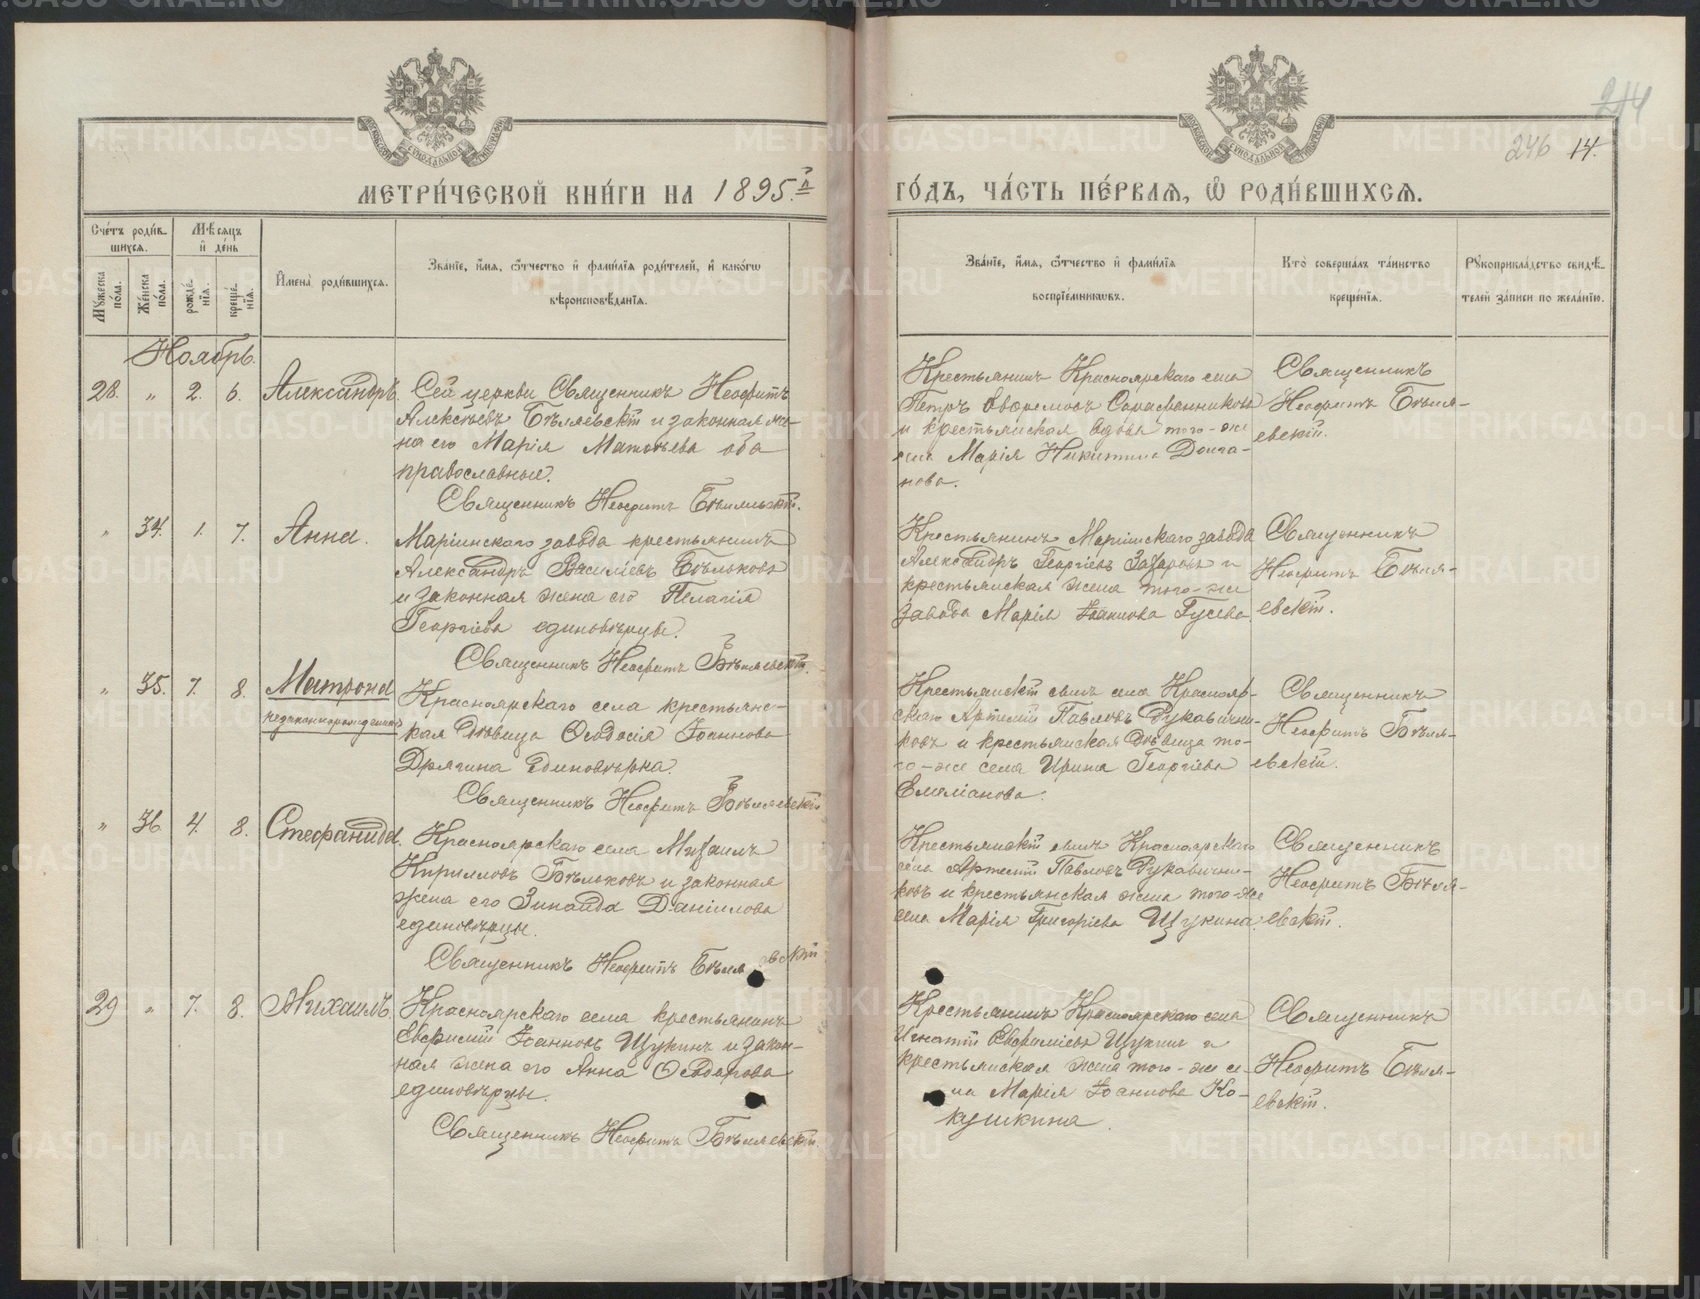 214
246 14.
МЕТРИ́ЧЕСКОЙ КНИ́ГИ НА 1895.й
ГО́ДЪ, ЧА́СТЬ ПЕ́РВАѦ, Ѿ РОДИ́ВШИХСѦ.
Сче́тъ роди́в-
шихсѧ.
Му́жеска по́ла.
Же́нска по́ла.
Мѣ́сѧцъ
и҆ де́нь
рожде́-
нїѧ.
креще́-
нїѧ.
И҆мена̀ роди́вшихсѧ.
Зва́нїе, и҆́мѧ, ѻ҆́тчество и҆ фами́лїѧ роди́телей, и҆ како́гѡ
вѣроисповѣ́данїѧ.
Зва́нїе, и҆́мѧ, ѻ҆́тчество и҆ фами́лїѧ
воспрїе́мникѡвъ.
Кто̀ соверша́лъ та́инство
креще́нїѧ.
Рꙋкоприкла́дство свидѣ́-
телей за́писи по жела́нїю.
Ноябрь.
28. " 2. 6. Александръ.
Сей церкви Священникъ Неофитъ
Алексѣевъ Бѣляевскій и законная же-
на его Марія Матвѣева оба
православные.
Священникъ Неофитъ Бѣляевскій.
Крестьянинъ Красноярскаго села
Петръ Евфремовъ
и крестьянская вдова того-же
села Марія Никитина Долга-
нова.
Священникъ
Неофитъ Бѣля-
евскій.
" 34. 1. 7. Анна.
Маріинскаго завода крестьянинъ
Александръ Василіевъ Бѣльковъ
и законная жена его Пелагія
Георгіева единовѣрцы.
Священникъ Неофитъ Бѣляевскій.
Крестьянинъ Маріинскаго завода
Александръ Георгіевъ Захаровъ и
крестьянская жена того-же
завода Марія Іоаннова Гусева.
Священникъ
Неофитъ Бѣля-
евскій.
" 35. 7. 8. Матрона
незаконнорожденная
Красноярскаго села крестьянс-
кая дѣвица Ѳеодосія Іоаннова
Дрягина единовѣрка.
Священникъ Неофитъ Бѣляевскій
Крестьянскій сынъ села Краснояр-
скаго Артемій Павловъ Рукавични-
ковъ и крестьянская дѣвица то-
го-же села Ирина Георгіева
Емеліанова.
Священникъ
Неофитъ Бѣля-
евскій.
" 36 4. 8. Стефанида.
Красноярскаго села Михаилъ
Кирилловъ Бѣльковъ и законная
жена его Зинаида Даніилова
единовѣрцы.
Священникъ Неофитъ Бѣляевскій
Крестьянскій сынъ Красноярскаго
села Артемій Павловъ Рукавични-
ковъ и крестьянская жена того-же
села Марія Григоріева Щукина.
Священникъ
Неофитъ Бѣля-
евскій.
29 " 7. 8. Михаилъ.
Красноярскаго села крестьянинъ
Евфимій Іоанновъ Щукинъ и закон-
ная жена его Анна Ѳеодорова
единовѣрцы.
Священникъ Неофитъ Бѣляевскій.
Крестьянинъ Красноярскаго села
Игнатій Евфиміевъ Щукинъ и
крестьянская жена того-же се-
ла Марія Іоаннова Ко-
кушкина.
Священникъ
Неофитъ Бѣля-
евскій.
METRIKI.GASO-URAL.RU